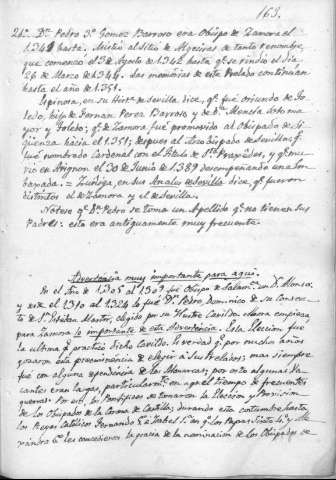 163.
21º. Dn. Pedro 3º Gomez Barroso era Obispo de Zamora el
1341 hasta. Asistió al sitio de Algeciras de tanto renombre,
que comenzó el 3 de Agosto de 1342 hasta q.e se rindió el dia
26 de Marzo de 1344. Las memorias de este Prelado continúan
hasta el año de 1351.
Espinosa, en su Histª de Sevilla dice, q.e fué oriundo de To-
ledo, hijo de Fernan Perez Barroso y de Dª Mencía Sotoma-
yor y Toledo; q.e de Zamora fué promovido al Obispado de Si-
güenza hacia el 1351; despues al Arzobispado de Sevilla; q.e
fué nombrado Cardenal con el título de Stª Praxedes, y q.e mu-
rió en Aviñon el 30 de Junio de 1389 desempeñando una Em-
baxada. = Zuñiga, en sus Anales de Sevilla dice, q.e fueron
distintos el de Zamora y el de Sevilla.
Notese q.e Dn. Pedro se toma un Apellido q.e no tienen sus
Padres: esta era antiguamente muy frecuente.
Advertencia muy importante para aqui.
En el Año de 1305 al 1309 fué Obispo de Salamª Dn. Alonso:
y desde el 1310 al 1324 lo fué Dn. Pedro, dominico de su Conven-
to de Sn. Esteban Martir, elegido por su Ilustre Cavildo. Ahora empieza
para Zamora lo importante de esta Advertencia. Esta Eleccion fué
la ultima q.e practicó dicho Cavildo. Es verdad q.e por muchos años
gozaron esta preeminencia de elegir a sus Prelados; mas siempre
fué con alguna dependencia de los Monarcas; por esto algunas Va-
cantes eran largas, particularmte en aquel tiempo de frecuentes
guerras. Por esto, los Pontifices se tomaron la Eleccion y Provision
de los Obispados de la Corona de Castilla; durando esta costumbre hasta
los Reyes Católicos Fernando 5º e Isabel 1ª en q.e los Papas Sixto 4º y Ale-
xandro 6º les concedieron la gracia de la nominacion de los Obispados de